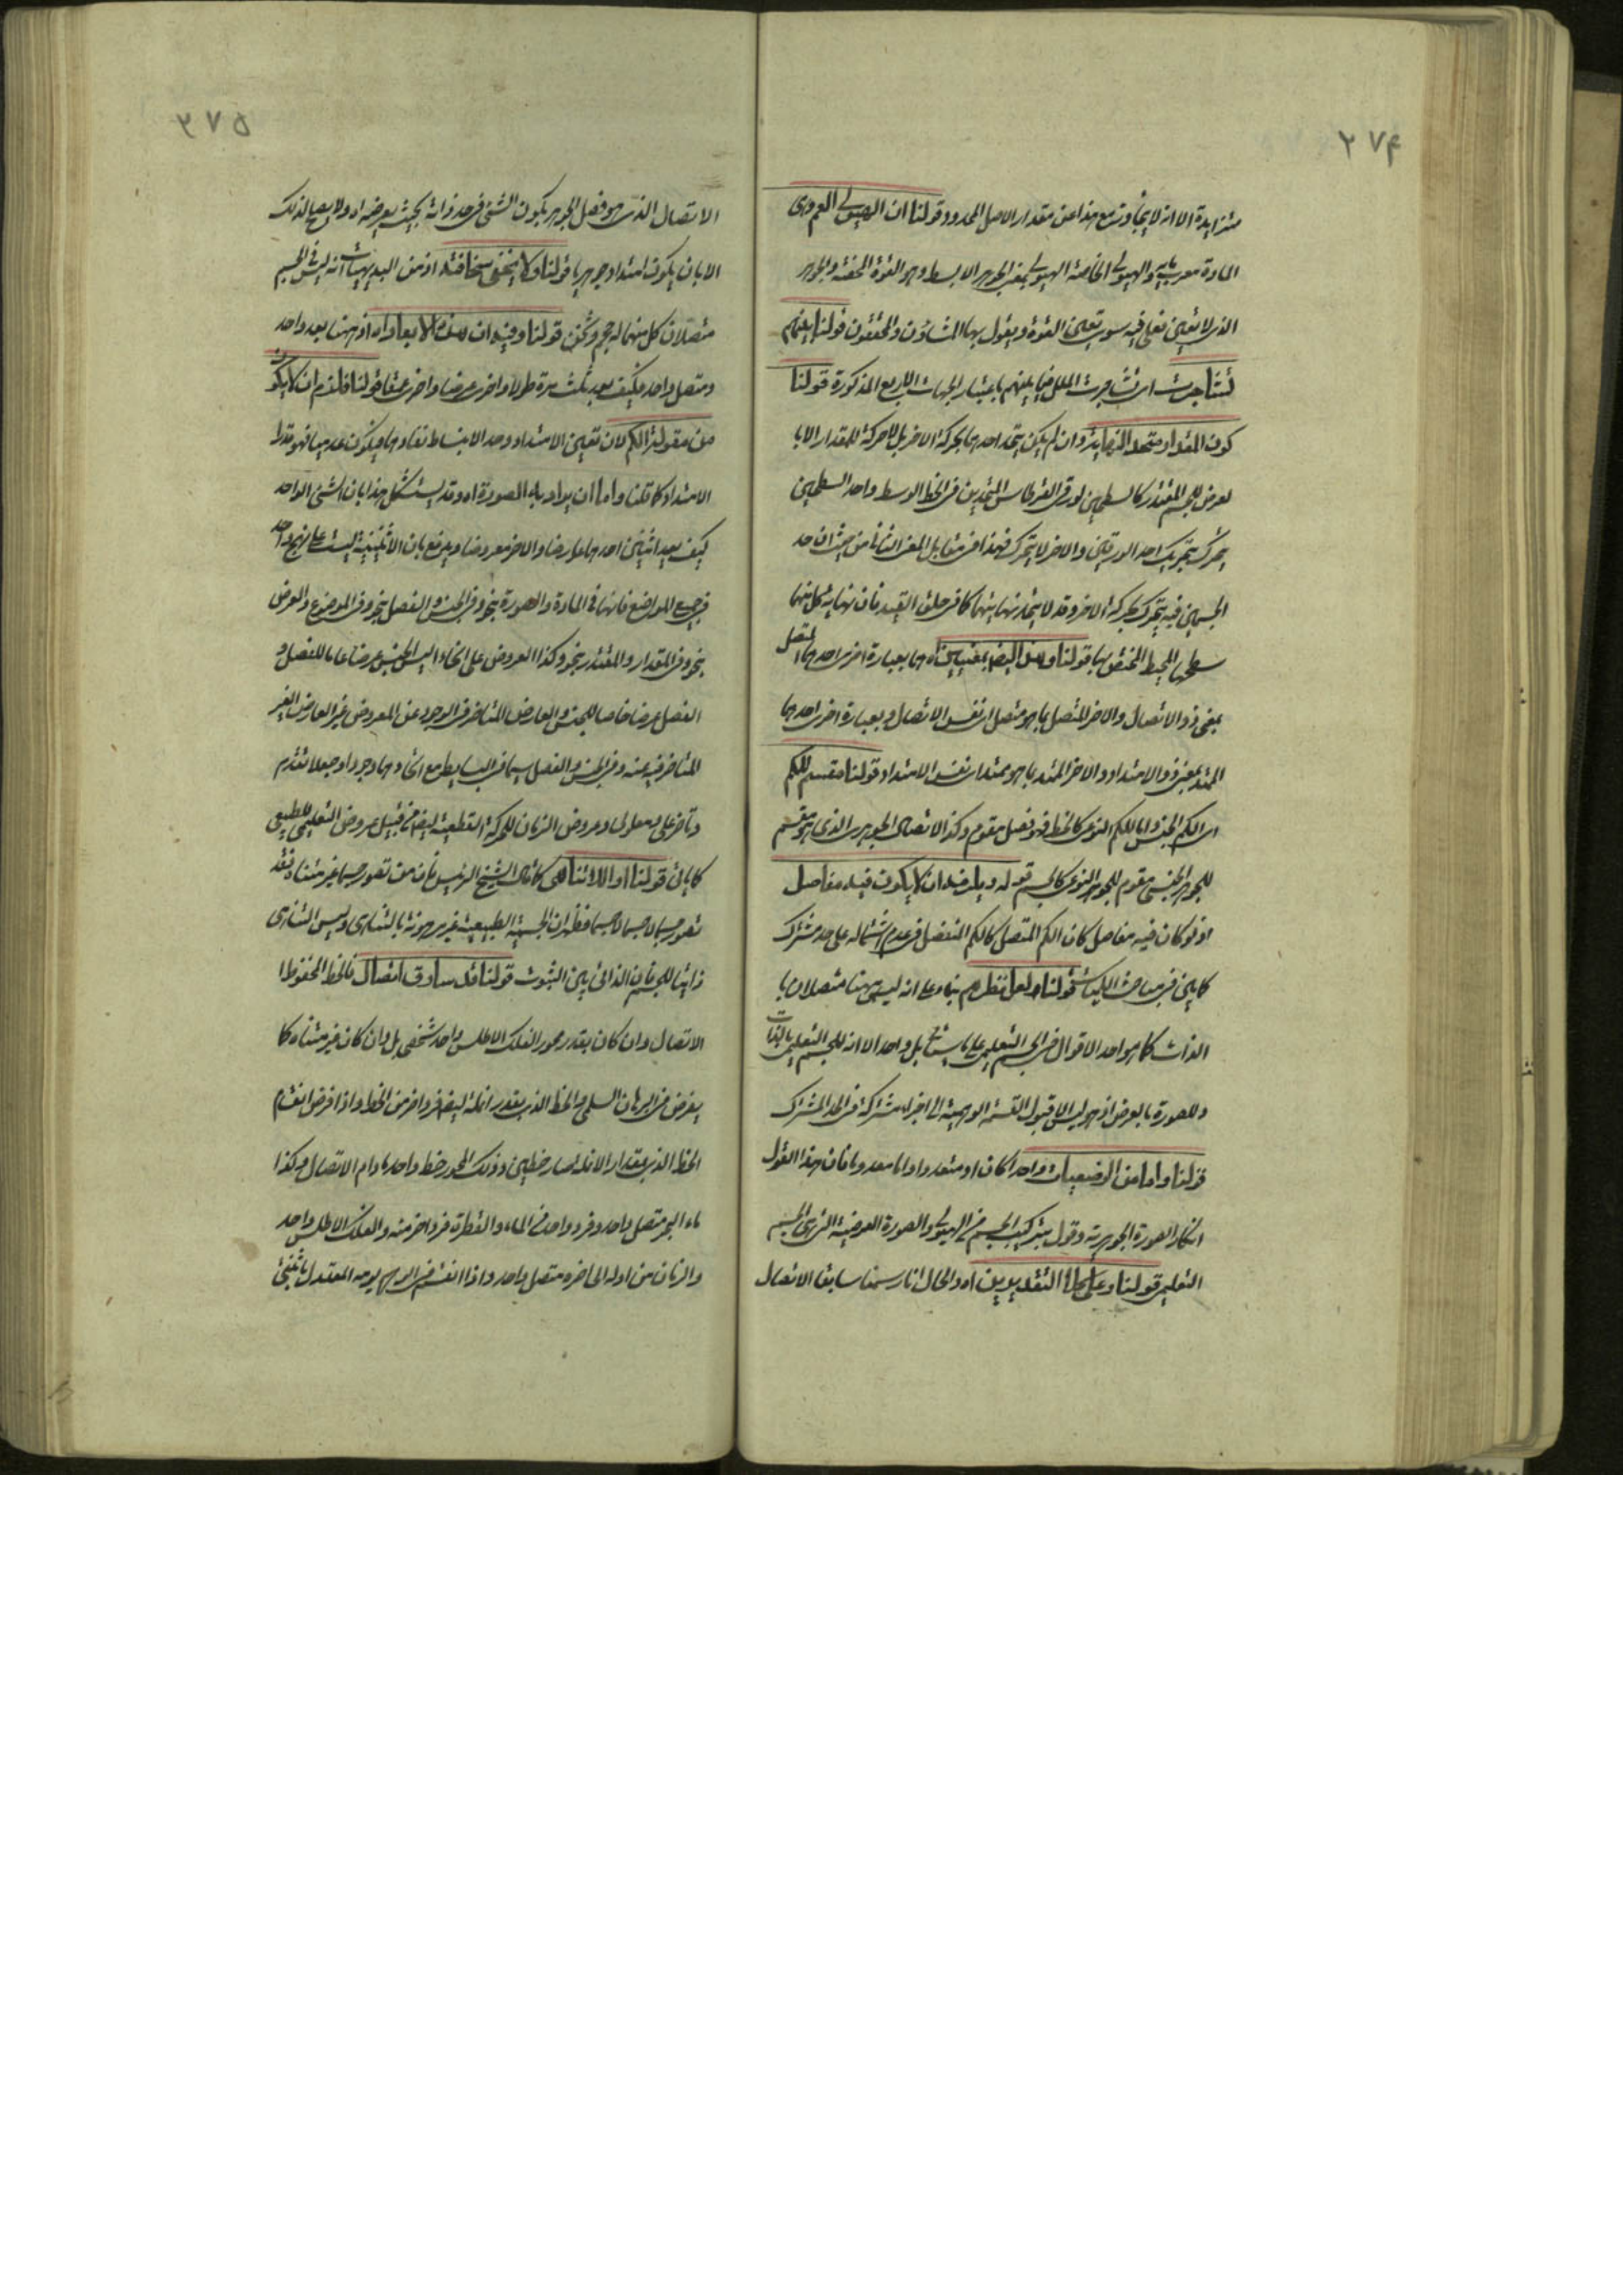 ٢٧٤
متزايدة الا انه لا يتجاوز مع هذا عن مقدار الاصل المحدود قولنا ان الهيولى العم وهى
المادة معربها والهيولى الخاصة الهيولى بمعنى الجوهر الابسط وهو القوة المحضة والجوهر
الذى لا تعين فعلى فيه سوى تعين القوة ويقول بها المشاؤن والمحققون قولنا بينهم
تشاجرت اى تشاجرت الملل فيما بينهم باعتبار الجهات الاربع المذكورة قولنا
كون المقدار متحد النهاية وان لم يكن يتحد احدهما بحركة الاخر بل لا حركة للمقدار الا با
لعرض للجسم المقتدر كالسطحين لورقى القرطاس المتحدين فى الخط الوسط واحد السطحين
يتحرك بتحريك احد الورقين والاخر لا يتحرك فهذا فى مقابل المعنى الثانى من حيث ان حد
الجسمين فيه يتحرك بحركة الاخر وقد لا يتحد نهايتهما كما فى حلق القيد فان نهاية كل منهما
سطحها المحيط المختص بها قولنا وهذا ايضا بمعنيين اه هما بعبارة اخرى احدهما المتصل
بمعنى ذو الاتصال والاخر المتصل بما هو متصل اى نفس الاتصال وبعبارة اخرى احدهما
الممتد بمعنى ذو الامتداد والاخر الممتد بما هو ممتد اى نفس الامتداد قولنا مقسم للكم
اى الكم الجنسى واما للكم النوعى كالخط فهو فصل مقوم وكذا الاتصال الجوهرى الذى هو مقسم
للجوهر الجنسى مقوم للجوهر النوعى كالجسم قوله ويلزمه ان لا يكون فيه مفاصل
اذ لو كان فيه مفاصل كان الكم المتصل كالكم المنفصل فى عدم اشتماله على حد مشترك
كما بين فى مباحث الكليات قولنا ولعل نظرهم بناء على انه ليس ههنا متصلان با
الذات كما هو احد الاقوال فى الجسم التعليمى على ما سيأتى بل واحد الا انه للجسم التعليمى بالذات
وللصورة بالعرض اذ هو ليس الا قبول القسمة الوهمية الى اجزاء مشتركة فى الحد المشترك
قولنا واما من الوضعيات واحدا كان او متعددا واما معدوما فان هذا القول
انكار الصورة الجوهرية وقول بتركيب الجسم من الهيولى والصورة العرضية التى هى الجسم
التعليمى قولنا وعلى كلا التقديرين اه والحال انا رسمنا سابقا الاتصال
٢٧٥
الاتصال الذى هو فصل الجوهر بكون الشئ فى حد ذاته بحيث يعرضه اه ولا يصح لذلك
الا بان يكون امتدادا جوهريا قولنا ولا يخفى سخافته اذ من البديهيات انه ليس فى الجسم
متصلان كل منهما له حجم وثخن قولنا وفيه ان هذه الابعاد اه اذ ههنا بعد واحد
ومتصل واحد فكيف يعد بثلث مرة طولا واخرى عرضا واخرى عمقا قولنا فلزم ان لا يكون
من مقولة الكم لان تعين الامتداد وحد الانبساط نفادهما فيكون عدميا فهو قدرا
الامتداد كما قلنا واما ان يراد به الصورة اه وقد يستشكل هذا بان الشئ الواحد
كيف يعد اثنين احدهما عارضا والاخر معروضا ويدفع بان الاثنينية ليست على نهج واحد
فى جميع المواضع فانها فى المادة والصورة بنحو وفى الجنس والفصل بنحو وفى الموضوع والعرض
بنحو وفى المقدار والمقتدر بنحو وكذا العروض على انحاء اليس الجنس عرضا عاما للفصل و
الفصل عرضا خاصا للجنس والعارض المتاخر فى الوجود عن المعروض غير العارض الغير
المتاخر فيه عنه وفى الجنس والفصل سيما فى البسايط مع اتحادهما وجودا وجعلا تقدم
وتاخر على ومعلولى وعروض الزمان للحركة القطعية ايضا من قبيل عروض التعليمى للطبيعى
كما يأتى قولنا او اللاتناهى كما قال الشيخ الرئيس فان من تصور جسما غير متناه فقد
تصور جسما لا جسما لا جسما فظهر ان الجسمية الطبيعية غير مرهونة بالتناهى وليس التناهى
ذاتيا للجسم فان الذاتى بين الثبوت قولنا كل ساوق اتصال فالخط المحفوظ ا
الاتصال وان كان بقدر محور الفلك الاطلس واحد شخصى بل وان كان غير متناه كما
يفرض فى البرهان السلمى والخط الذى بقدر انملة ايضا فرد اخر من الخط واذا فرض انقسام
الخط الذى بمقدار الانملة صار خطين وذلك المحور خط واحد ما دام الاتصال وهكذا
ماء البحر متصل واحد وفرد واحد من الماء والقطرة فرد اخر منه والفلك الاطلس واحد
والزمان من اوله الى اخره متصل واحد واذا انقسم فى الوهم يومه المعتدل باثنى